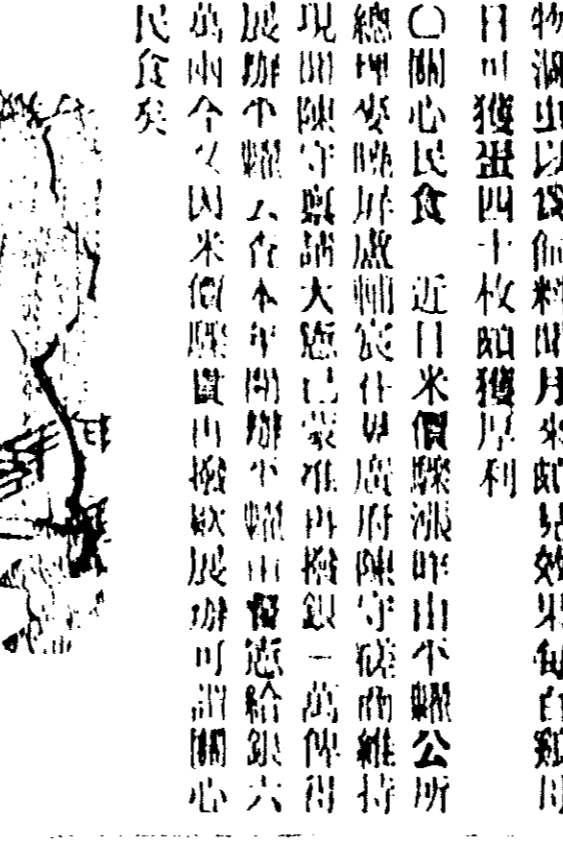 虫以為飼料月來頗見效果每白雞
日可獲蛋四十枚頗獲厚利
〇關心民食　近日米價驟漲昨由平糶公所
總理麥曉屏盧輔宸往與廣府陳守磋商維持
現聞陳守稟請大憲已蒙准再撥銀一萬俾得
展辦平糶云查本年開辦平糶由督憲給銀六
萬兩今又因米價驟貴再撥欵展辦可謂關心
民食矣